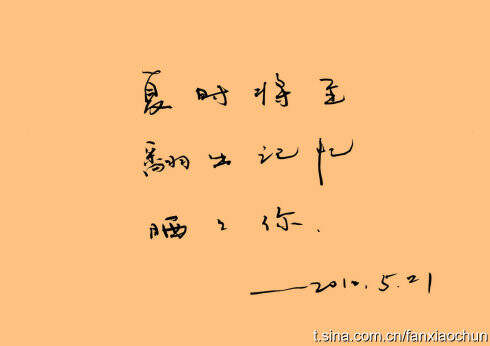 夏时将至
翻出记忆
晒晒你.
——2010.5.21
t.sina.com.cn/fanxiaochun